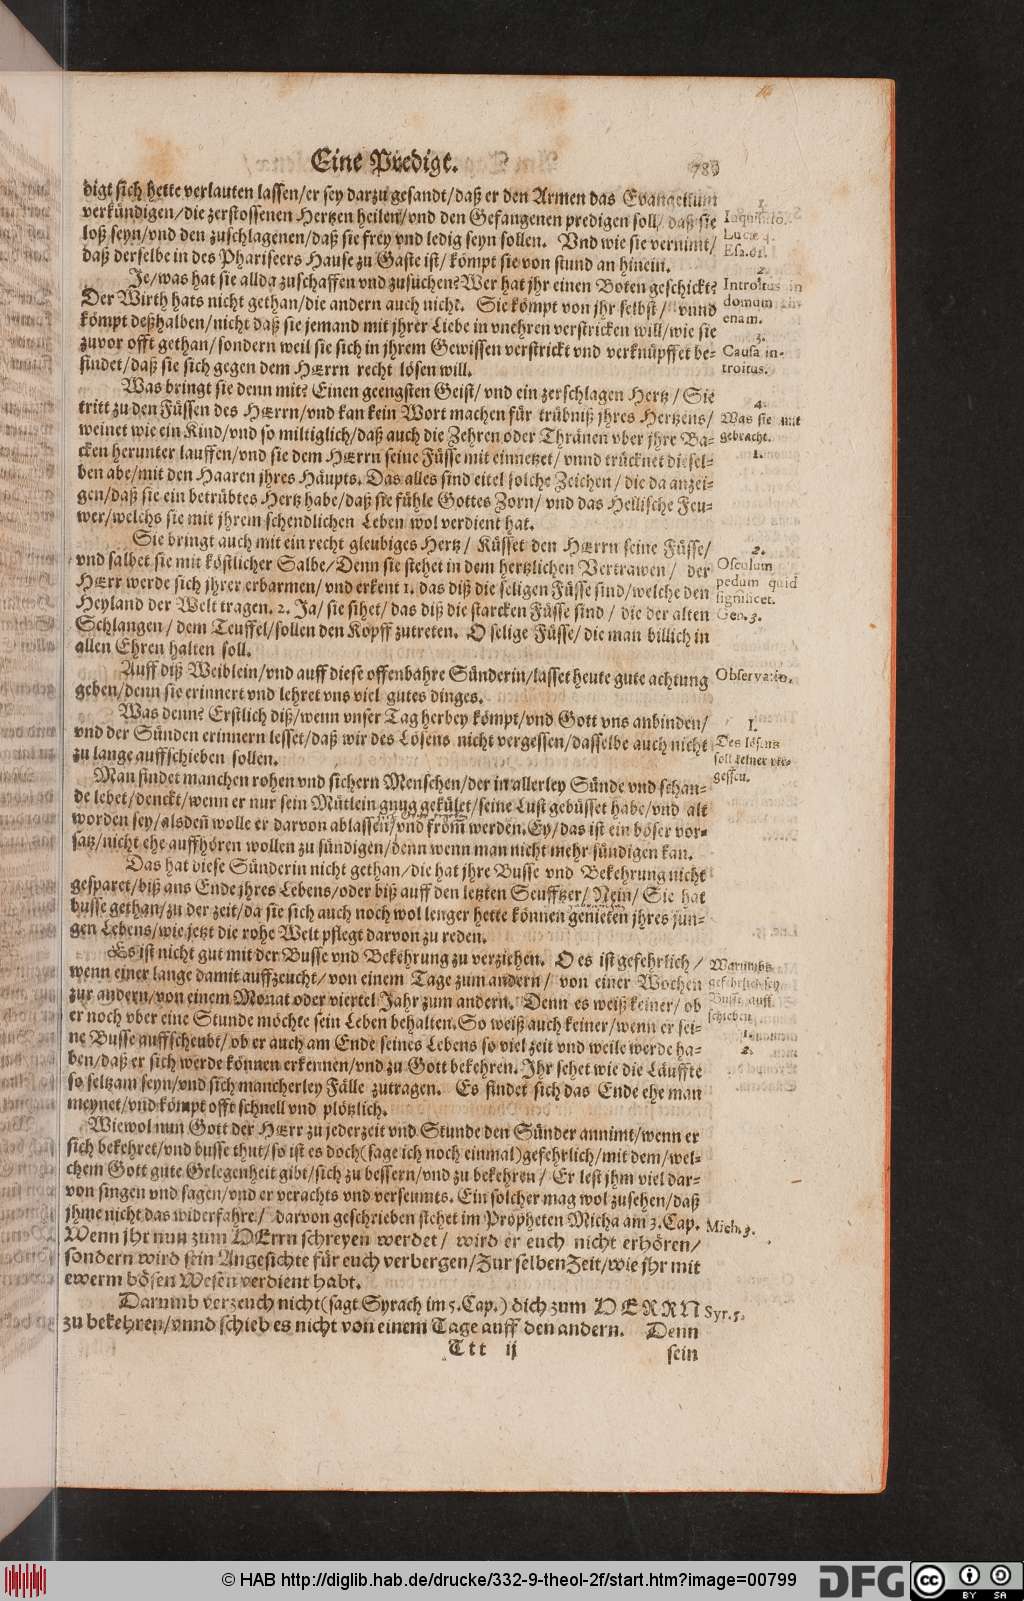 Eine Predigt.
digt sich hette verlauten lassen/er sey darzu gesandt/daß er den Armen das Evangelium
verkündigen/die zerstossenen Hertzen heilen/vnd den Gefangenen predigen soll/daß sie
loß seyn/vnd den zuschlagenen/daß sie frey vnd ledig seyn sollen. Vnd wie sie vernimt/
daß derselbe in des Phariseers Hause zu Gaste ist/kömpt sie von stund an hinein.
1.
Lucæ 4.
Esa.61.
Je/was hat sie allda zuschaffen vnd zusuchen? Wer hat jhr einen Boten geschickt?
Der Wirth hats nicht gethan/die andern auch nicht. Sie kömpt von jhr selbst/ vnnd
kömpt deßhalben/nicht daß sie jemand mit jhrer Liebe in vnehren verstricken will/wie sie
zuvor offt gethan/sondern weil sie sich in jhrem Gewissen verstrickt vnd verknüpffet be-
findet/daß sie sich gegen dem HErrn recht lösen will.
2.
Introitus in
domum
enam.
3.
Causa in-
troitus.
Was bringt sie denn mit? Einen geengsten Geist/ vnd ein zerschlagen Hertz/ Sie
tritt zu den Füssen des HErrn/vnd kan kein Wort machen für trübniß jhres Hertzens/
weinet wie ein Kind/vnd so miltiglich/daß auch die Zehren oder Thränen vber jhre Ba-
cken herunter lauffen/vnd sie dem HErrn seine Füsse mit einnetzet/ vnnd trücknet diesel-
ben abe/mit den Haaren jhres Häupts. Das alles sind eitel solche Zeichen/ die da anzei-
gen/daß sie ein betrübtes Hertz habe/daß sie fühle Gottes Zorn/ vnd das Hellische Feu-
wer/welchs sie mit jhrem schendlichen Leben wol verdient hat.
4.
Was sie mit
gebracht.
1.
Sie bringt auch mit ein recht gleubiges Hertz/ Küsset den HErrn seine Füsse/
vnd salbet sie mit köstlicher Salbe/Denn sie stehet in dem hertzlichen Vertrawen/ der
HErr werde sich jhrer erbarmen/ vnd erkent 1. das diß die seligen Füsse sind/welche den
Heyland der Welt tragen. 2. Ja/ sie sihet/ das diß die starcken Füsse sind/ die der alten
Schlangen/ dem Teuffel/sollen den Kopff zutreten. O selige Füsse/ die man billich in
allen Ehren halten soll.
2.
Osculum
pedum quid
significet.
Gen.3.
Auff diß Weiblein/vnd auff diese offenbahre Sünderin/lasset heute gute achtung
geben/denn sie erinnert vnd lehret vns viel gutes dinges.
Observatio.
Was denn? Erstlich diß/wenn vnser Tag herbey kömpt/vnd Gott vns anbinden/
vnd der Sünden erinnern lesset/daß wir des Lösens nicht vergessen/dasselbe auch nicht
zu lange auffschieben sollen.
1.
Des lösens
soll keiner ver-
gessen.
Man findet manchen rohen vnd sichern Menschen/der in allerley Sünde vnd schan-
de lebet/denckt/wenn er nur sein Mütlein gnug gekület/seine Lust gebüsset habe/vnd alt
worden sey/alsdeñ wolle er darvon ablassen/vnd from̃ werden. Ey/das ist ein böser vor-
satz/nicht ehe auffhören wollen zu sündigen/denn wenn man nicht mehr sündigen kan.
Das hat diese Sünderin nicht gethan/die hat jhre Busse vnd Bekehrung nicht
gesparet/biß ans Ende jhres Lebens/oder biß auff den letzten Seufftzer/ Nein/ Sie hat
busse gethan/zu der zeit/da sie sich auch noch wol lenger hette können geniessen jhres jun-
gen Lebens/wie jetzt die rohe Welt pflegt darvon zu reden.
Es ist nicht gut mit der Busse vnd Bekehrung zu verziehen. O es ist gefehrlich/
wenn einer lange damit auffzeucht/von einem Tage zum andern/ von einer Wochen
zur andern/von einem Monat oder viertel Jahr zum andern. Denn es weiß keiner/ ob
er noch vber eine Stunde möchte sein Leben behalten. So weiß auch keiner/wenn er sei-
ne Busse auffscheubt/ob er auch am Ende seines Lebens so viel zeit vnd weile werde ha-
ben/daß er sich werde können erkennen/vnd zu Gott bekehren. Jhr sehet wie die Läuffte
so seltzam seyn/vnd sich mancherley Fälle zutragen. Es findet sich das Ende ehe man
meynet/vnd kömpt offt schnell vnd plötzlich.
Warumbs
gefehrlich sey
Busse auff-
schieben.
1.
2.
Wiewol nun Gott der HErr zu jederzeit vnd Stunde den Sünder annimt/wenn er
sich bekehret/vnd busse thut/so ist es doch(sage ich noch einmal)gefehrlich/mit dem/wel-
chem Gott gute Gelegenheit gibt/sich zu bessern/vnd zu bekehren/ Er lest jhm viel dar-
von singen vnd sagen/vnd er verachts vnd verseumts. Ein solcher mag wol zusehen/daß
jhme nicht das widerfahre/ darvon geschrieben stehet im Propheten Micha am 3.Cap.
Wenn jhr nun zum HErrn schreyen werdet/ wird er euch nicht erhören/
sondern wird sein Angesichte für euch verbergen/Zur selben Zeit/wie jhr mit
ewerm bösen Wesen verdient habt.
Mich.3.
Darumb verzeuch nicht(sagt Syrach im 5.Cap.) dich zum HERRN
zu bekehren/vnnd schieb es nicht von einem Tage auff den andern. Denn
Syr.5.
Ttt ij
sein
© HAB http://diglib.hab.de/drucke/332-9-theol-2f/start.htm?image=00799
DFG
cc
BY
SA